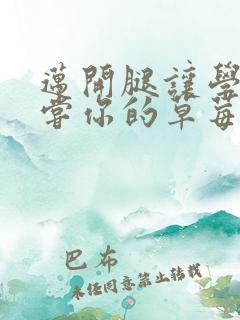 蓮開腿讓學
嘗你的草莓
巴布
未经同意禁止转载